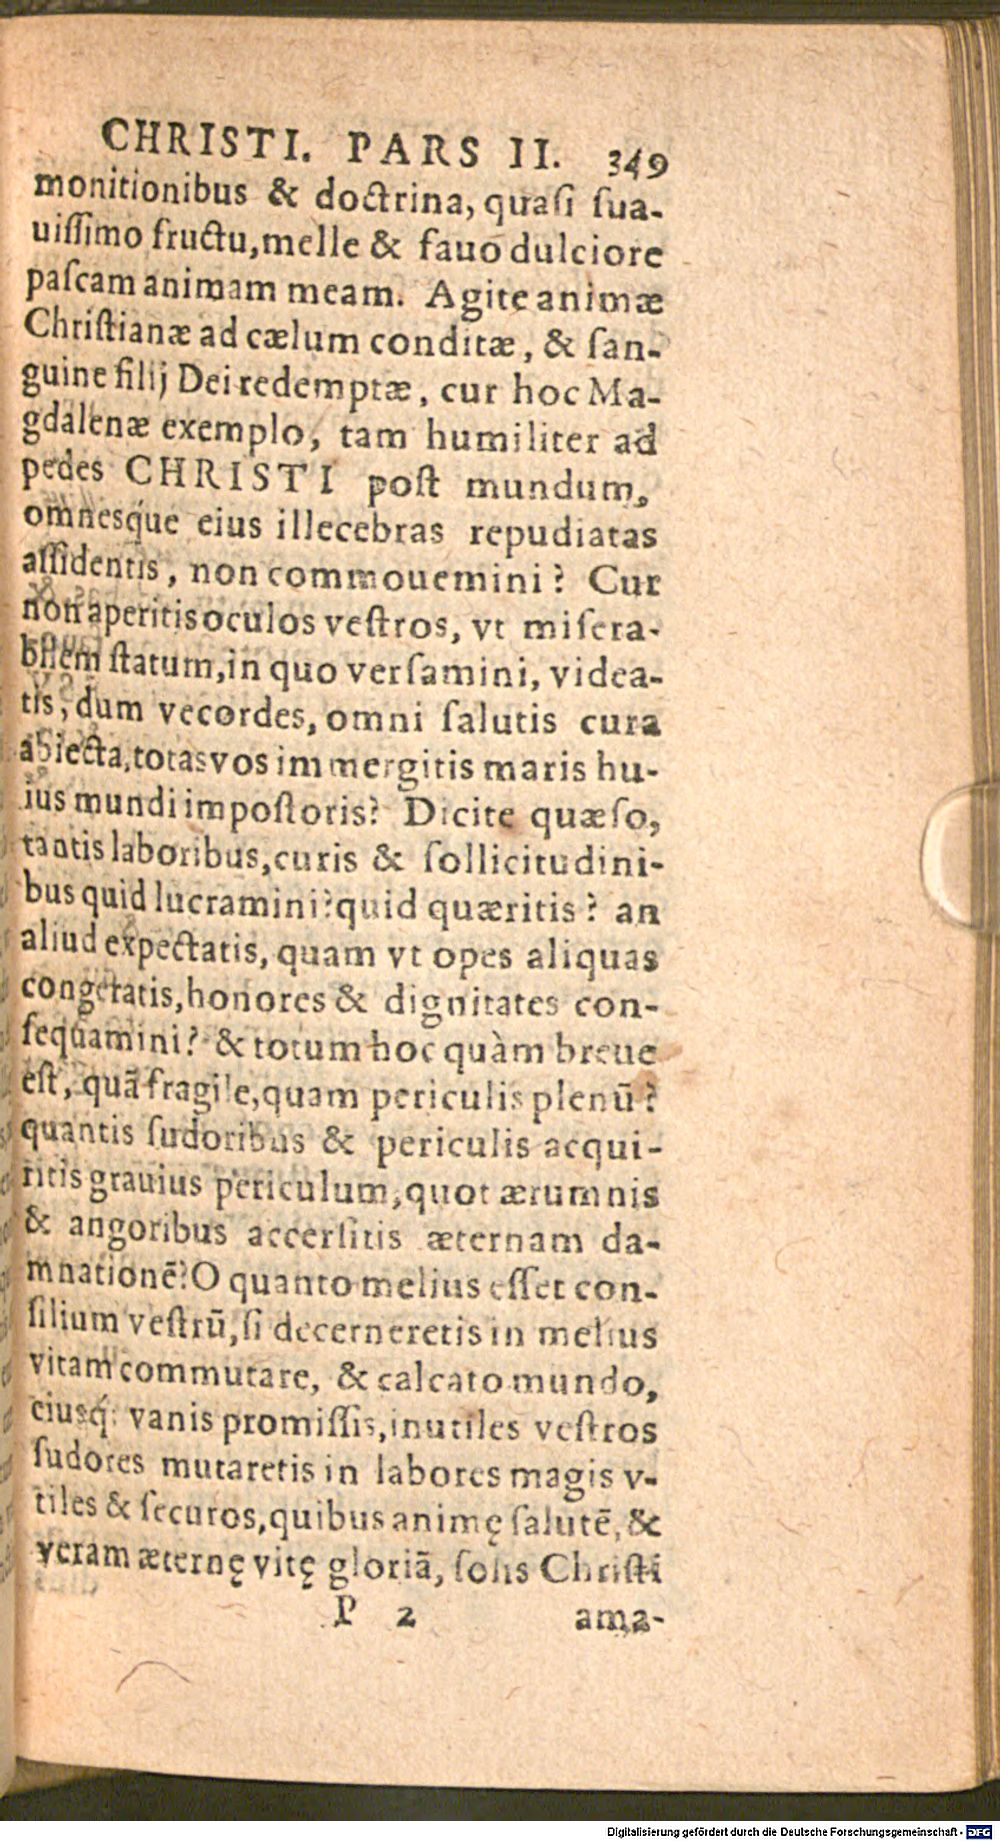 CHRISTI. PARS II. 349
monitionibus & doctrina, quasi sua-
uissimo fructu, melle & fauo dulciore
pascam animam meam. Agite animæ
Christianæ ad cælum conditæ, & san-
guine filij Dei redemptæ, cur hoc Ma-
gdalenæ exemplo, tam humiliter ad
pedes CHRISTI post mundum,
omnesque eius illecebras repudiatas
assidentis, non commouemini? Cur
non aperitis oculos vestros, vt misera-
bilem statum, in quo versamini, videa-
tis, dum vecordes, omni salutis cura
abiecta, totas vos immergitis maris hu-
ius mundi impostoris? Dicite quæso,
tantis laboribus, curis & sollicitudini-
bus quid lucramini? quid quæritis? an
aliud expectatis, quam vt opes aliquas
congeratis, honores & dignitates con-
sequamini? & totum hoc quàm breue
est, quā fragile, quam periculis plenū?
quantis sudoribus & periculis acqui-
ritis grauius periculum, quot ærumnis
& angoribus accersitis æternam da-
mnationē? O quanto melius esset con-
silium vestrū, si decerneretis in melius
vitam commutare, & calcato mundo,
eiusq́; vanis promissis, inutiles vestros
sudores mutaretis in labores magis v-
tiles & securos, quibus animę salutē, &
veram æternę vitę gloriā, solis Christi
P 2 ama-
Digitalisierung gefördert durch die Deutsche Forschungsgemeinschaft - DFG